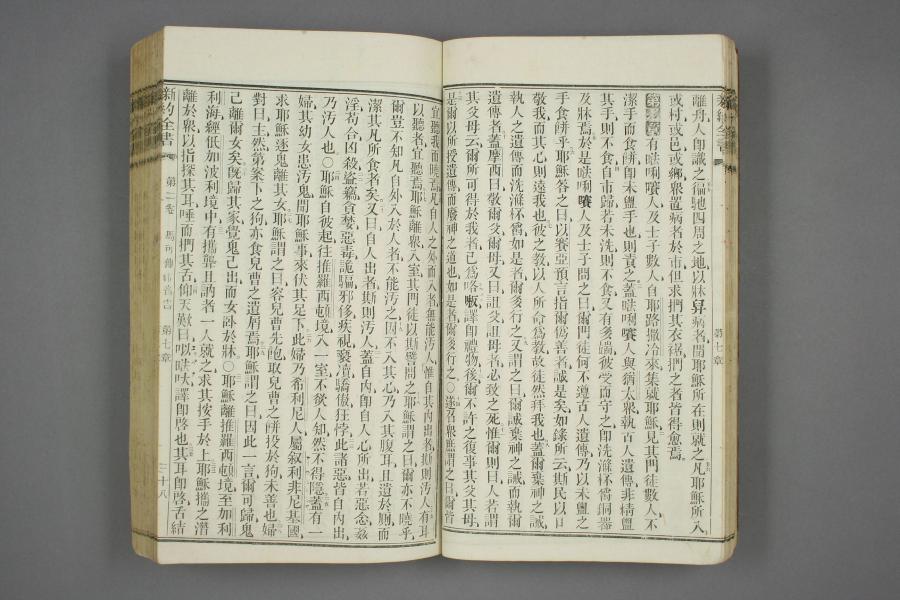 新約全書
第七章
離舟人卽識之徧馳四周之地以牀舁病者聞耶穌所在則就之凡耶穌所入
或村或邑或鄉衆置病者於市但求捫其衣裾捫之者皆得愈焉
第七章有𠵽唎㘔人及士子數人自耶路撒冷來集就耶穌見其門徒數人不
潔手而食餅卽未盥手也則責之蓋𠵽唎㘔人與猶太衆執古人遺傳非精盥
其手則不食自市歸若未洗則不食又有多端彼受而守之卽洗滌杯斝銅器
及牀焉於是𠵽唎㘔人及士子問之曰爾門徒何不遵古人遺傳乃以未盥之
手食餅乎耶穌答之曰以賽亞預言指爾僞善者誠是矣如錄所云斯民以口
敬我而其心則遠我也彼之教以人所命爲教故徒然拜我也蓋爾棄神之誡
執人之遺傳而洗滌杯斝如是者爾多行之又謂之曰爾誠棄神之誡而執爾
遺傳者蓋摩西曰敬爾父爾母又曰詛父詛母者必致之死惟爾則曰人若謂
其父母云爾所可得於我者已爲咯㘔譯卽禮物後爾不許之復事其父其母
是爾以所授遺傳而廢神之道也如是者爾多行之○遂召衆庶謂之曰爾皆
宜聽我而曉焉凡自人之外而入者無能污人惟自其內出者斯則污人有耳
以聽者宜聽焉耶穌離衆入室其門徒以斯譬問之耶穌謂之曰爾亦不曉乎
爾豈不知凡自外入於人者不能污之因不入其心乃入其腹耳且遺於廁而
潔其凡所食者矣又曰自人出者斯則污人蓋自內卽自人心所出者惡念姦
淫苟合凶殺盜竊貪婪惡毒詭騙邪侈疾視褻瀆驕傲狂悖此諸惡皆自內出
乃污人也○耶穌自彼起往推羅西頓境入一室不欲人知然不得隱蓋有一
婦其幼女患污鬼聞耶穌事來伏其足下此婦乃希利尼人屬叙利非尼基國
求耶穌逐鬼離其女耶穌謂之曰容兒曹先飽取兒曹之餅投於狗未善也婦
對曰主然第案下之狗亦食兒曹之遺屑焉耶穌謂之曰因此一言爾可歸鬼
已離爾女矣旣歸其家覺鬼已出而女臥於牀○耶穌離推羅西頓境至加利
利海經低加波利境中有攜聾且訥者一人就之求其按手於上耶穌攜之潛
離於衆以指探其耳唾而捫其舌仰天歎曰以𠵽吠譯卽啓也其耳卽啓舌結
新約全書
第二卷
馬可傳福音書
第七章
二十八